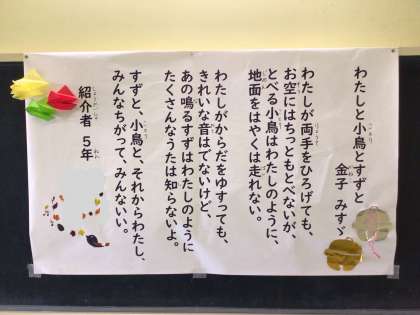 わたしと小鳥とすずと
金子 みすゞ
わたしが両手をひろげても、
お空にはちっともとべないが、
とべる小鳥はわたしのように、
地面をはやくは走れない。
わたしがからだをゆすっても、
きれいな音はでないけど、
あの鳴るすずはわたしのように
たくさんなうたは知らないよ。
すずと、小鳥と、それからわたし、
みんなちがって、みんないい。
紹介者 5年